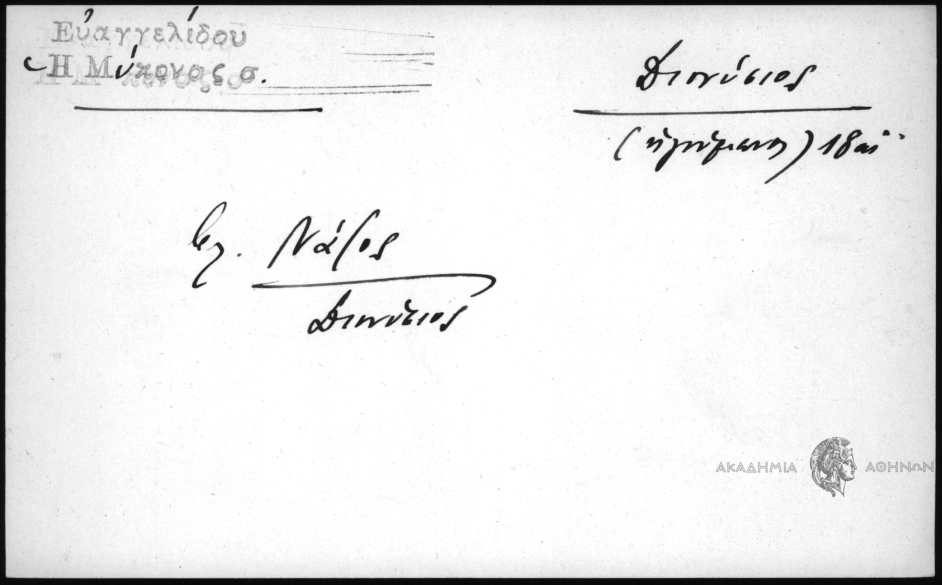 Εὐαγγελίδου
Ἡ Μύκονος σ.
Διονύσιος
(ἡγούμενος) 18 αἰ.
βλ. Νάζος
Διονύσιος
ΑΚΑΔΗΜΙΑ ΑΘΗΝΩΝ